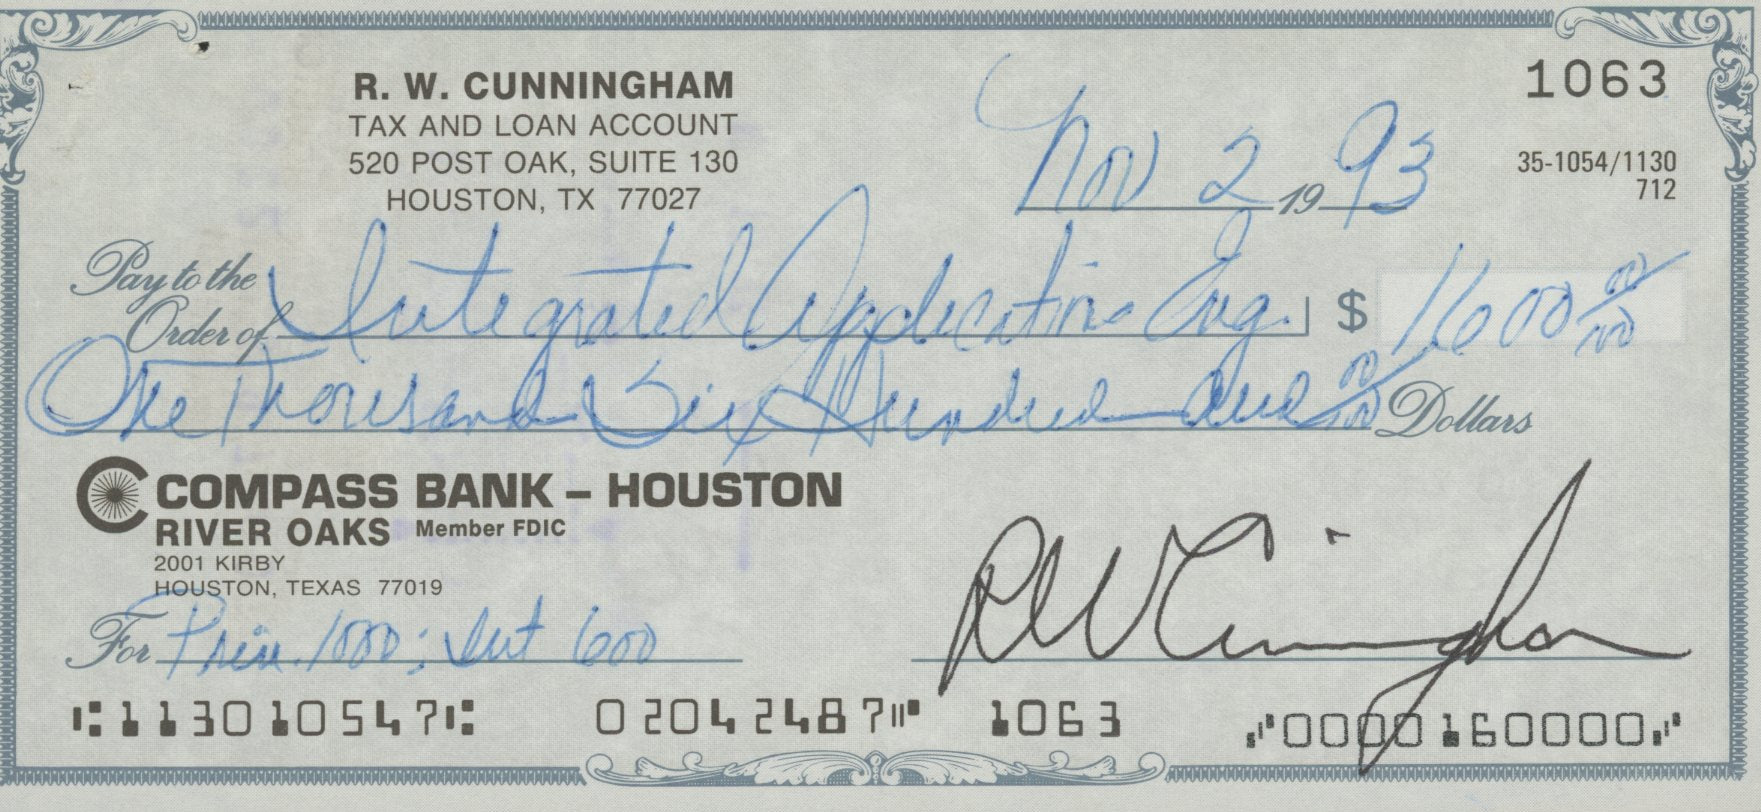 R. W. CUNNINGHAM
TAX AND LOAN ACCOUNT
520 POST OAK, SUITE 130
HOUSTON, TX 77027
1063
35-1054/1130
712
Nov 2 19 93
Pay to the
Order of Integrated Application Eng. $ 1600 00/00
One Thousand Six Hundred and 00/00 Dollars
COMPASS BANK – HOUSTON
RIVER OAKS Member FDIC
2001 KIRBY
HOUSTON, TEXAS 77019
For Prin. 1000; Int 600
R W Cunningham
⑆113010547⑆ 02042487⑈ 1063 ⑈0000160000⑈